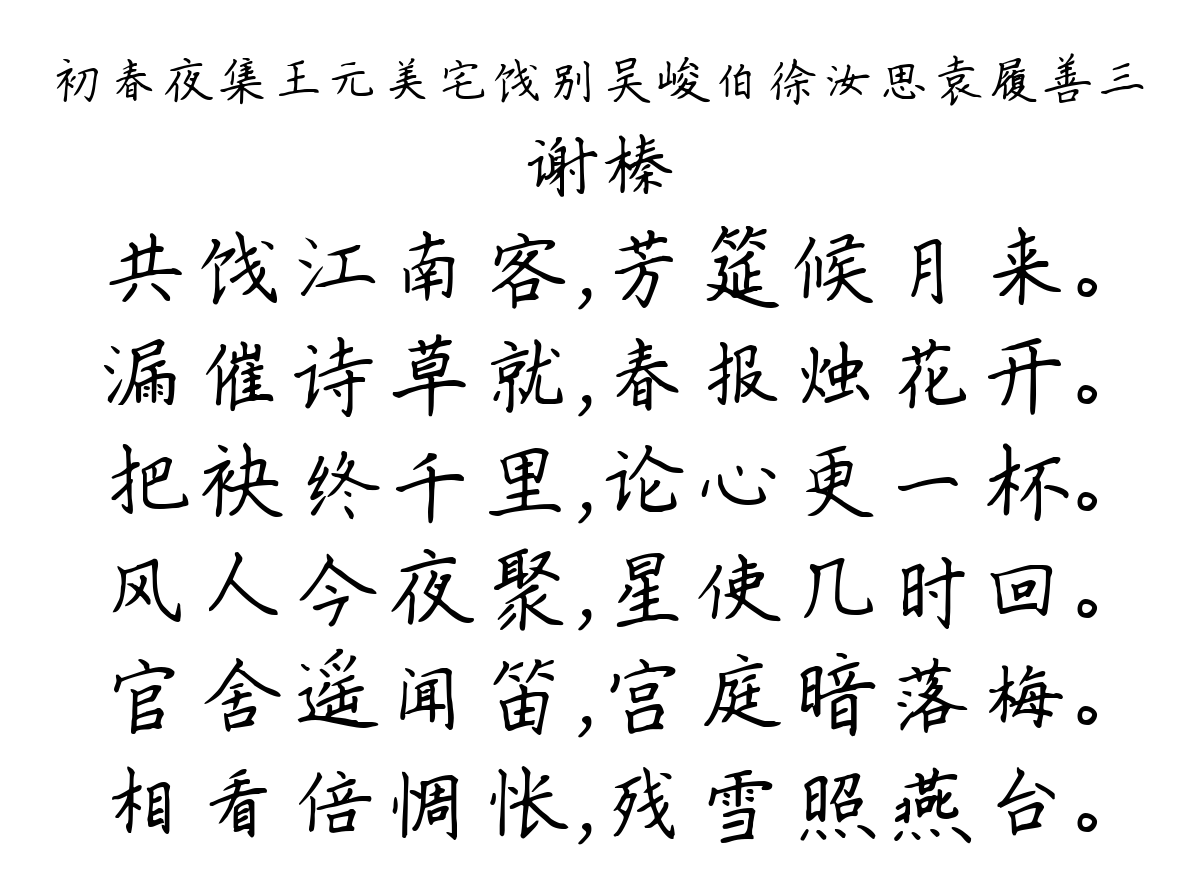 初春夜集王元美宅饯别吴峻伯徐汝思袁履善三
谢榛
共饯江南客,芳筵候月来。
漏催诗草就,春报烛花开。
把袂终千里,论心更一杯。
风人今夜聚,星使几时回。
官舍遥闻笛,宫庭暗落梅。
相看倍惆怅,残雪照燕台。